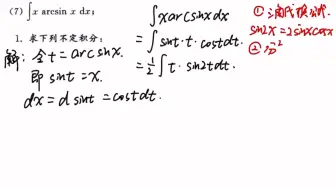 (7) ∫x arcsin x dx;
1. 求下列不定积分:
解: 令t=arcsinx.
即 sint=x.
dx=d sint =costdt.
∫xarcsinxdx
=∫sint·t·costdt.
=½∫t·sin2tdt.
①三角代换公式.
sin2x=2sinxcosx
②